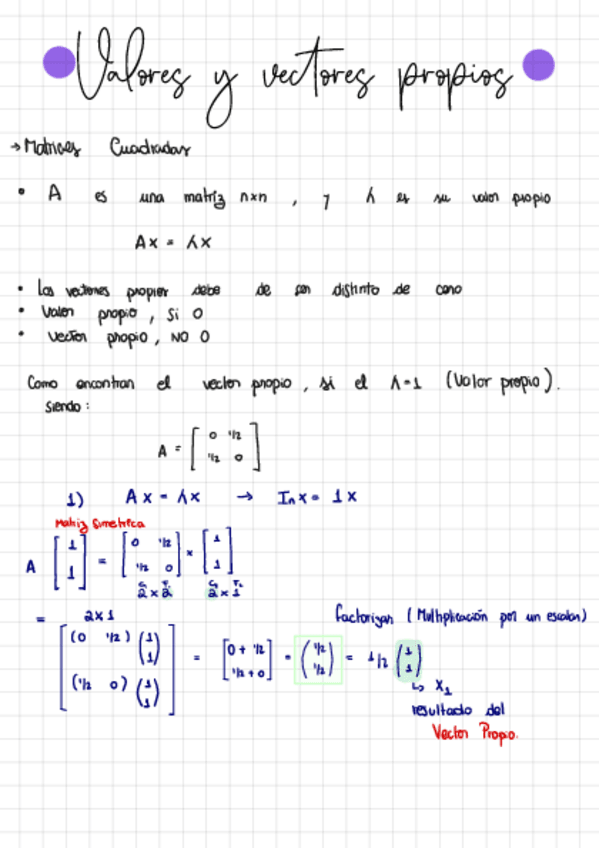 Valores y vectores propios
→ Matrices Cuadradas
• A es una matriz nxn , y λ es su valor propio
Ax = λx
• Los vectores propios debe de ser distinto de cero
• Valor propio , Si 0
• Vector propio , NO 0
Como encontrar el vector propio , si el λ=1 (Valor propio).
Siendo:
A = [ 0 1/2
1/2 0 ]
1) Ax = λx → Inx = 1x
Matriz Simetrica
A [ 1 1 ] = [ 0 1/2 1/2 0 ] × [ 1 1 ]
2 × 2 2 × 1
= 2x1 factorizar (Multiplicación por un escalar)
[ (0 1/2) (1 1) (1/2 0) (1 1) ] = [ 0 + 1/2 1/2 + 0 ] = (1/2 1/2) = 1/2 (1 1)
↳ X1
resultado del
Vector Propio.